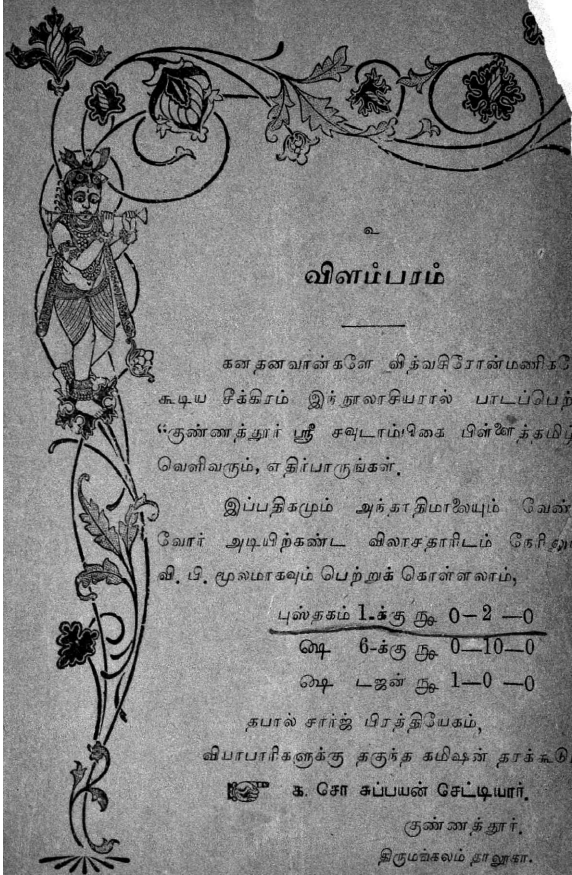 உ
விளம்பரம்
கனதனவான்களே வித்வசிரோன்மணிகளே
கூடிய சீக்கிரம் இந்நூலாசியரால் பாடப்பெற்
“குண்ணத்தூர் ஸ்ரீ சவுடாம்பிகை பிள்ளைத்தமிழ்
வெளிவரும், எதிர்பாருங்கள்.
இப்பதிகமும் அந்தாதிமாலையும் வேண்
வோர் அடியிற்கண்ட விலாசதாரிடம் நேரிலு
வி. பி. மூலமாகவும் பெற்றுக் கொள்ளலாம்,
புஸ்தகம் 1-க்கு ரூ 0—2—0
௸ 6-க்கு ரூ 0—10—0
௸ டஜன் ரூ 1—0—0
தபால் சார்ஜ் பிரத்தியேகம்,
வியாபாரிகளுக்கு தகுந்த கமிஷன் தரக்கூடு
க. சோ சுப்பயன் செட்டியார்.
குண்ணத்தூர்.
திருமங்கலம் தாலூகா.